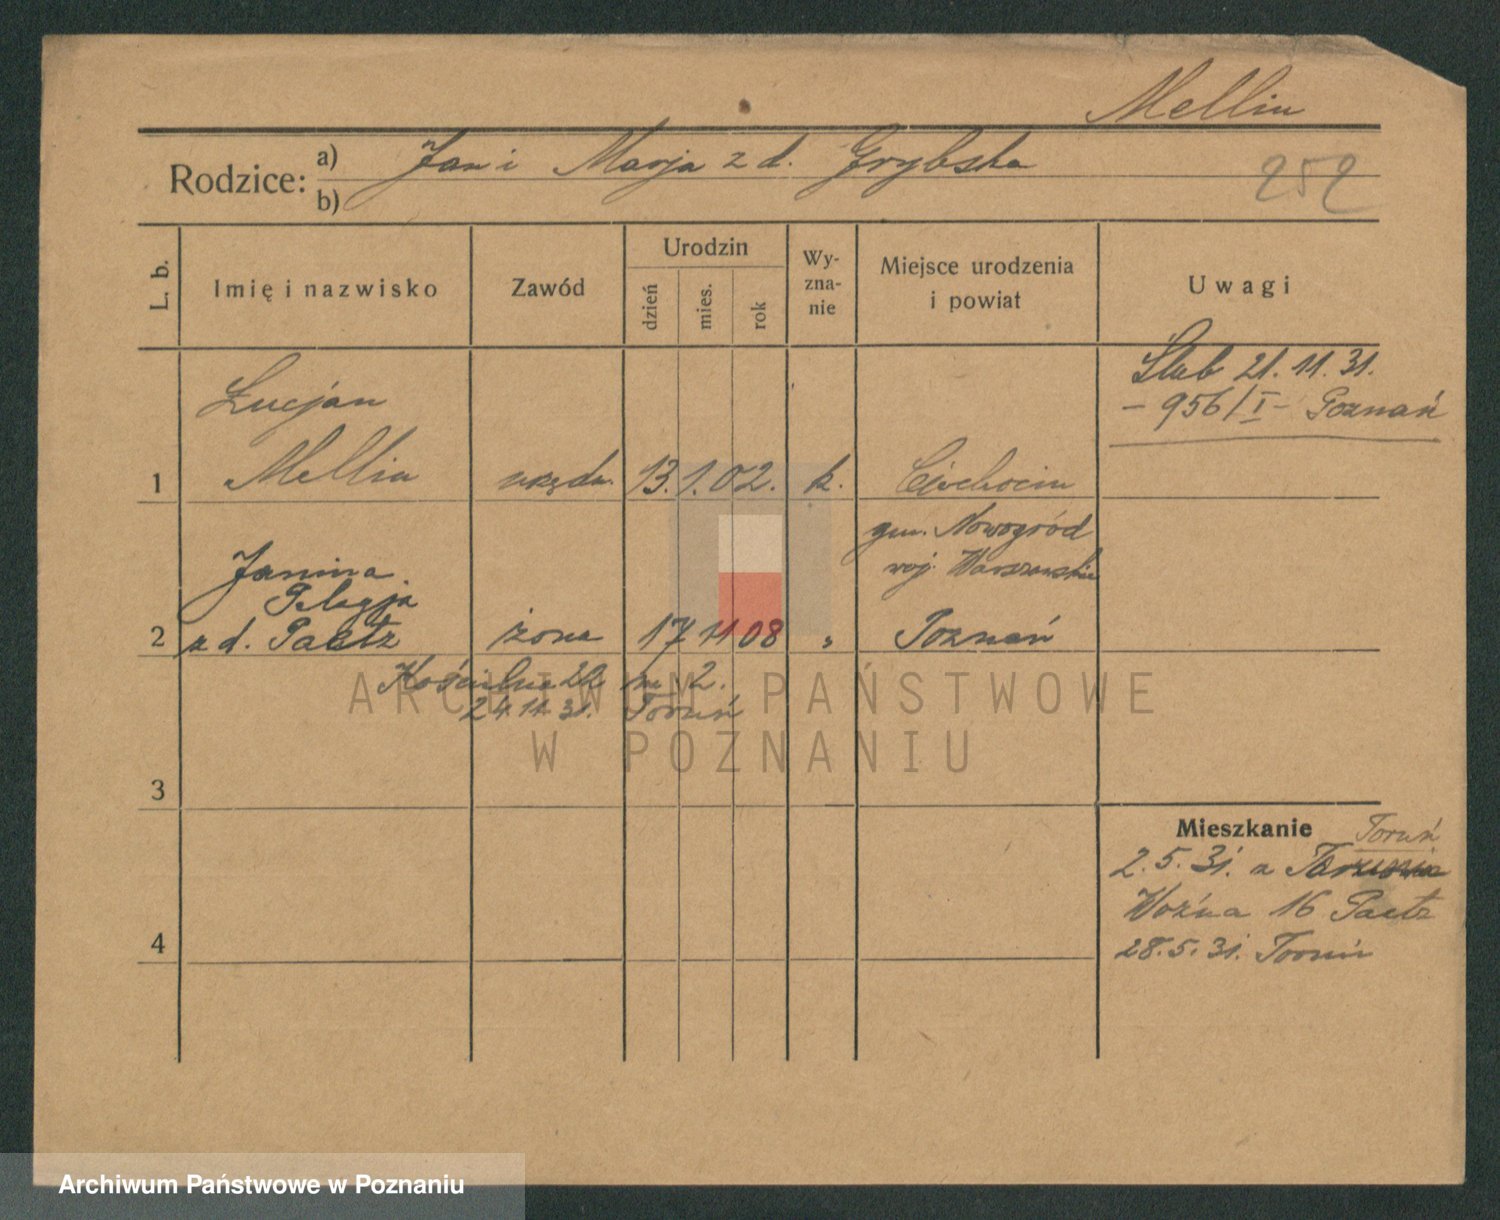 Mellin
Rodzice: a) Jan i Marja z d. Grybska
b)
252
L. b.
Imię i nazwisko
Zawód
Urodzin
dzień
mies.
rok
Wy-
zna-
nie
Miejsce urodzenia
i powiat
Uwagi
Ślub 21.11.31.
- 956/I - Poznań
Łucjan
1 Mellin urzędn. 13.1.02. k. Ciechocin
gm. Nowogród
woj. Warszawskie
Janina
Pelagja
2 z d. Paetz żona 17 11 08 " Poznań
Kościelna 22 m 2.
24.11.31. Toruń
3
4
Mieszkanie Toruń
2.5.31. z
Woźna 16 Paetz
28.5.31. Toruń
ARCHIWUM PAŃSTWOWE
W POZNANIU
Archiwum Państwowe w Poznaniu